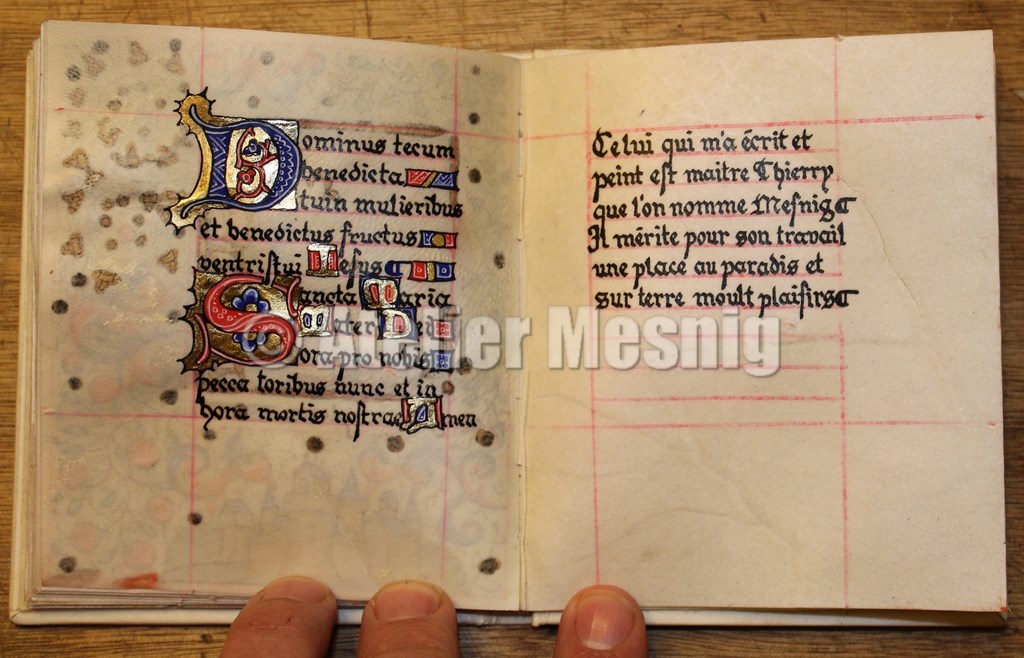 Dominus tecum
benedicta
tuin mulieribus
et benedictus fructus
ventristui Iesus
Sancta Maria
Mater Dei
ora pro nobis
pecca toribus nunc et in
hora mortis nostrae Amen
Celui qui m'a écrit et
peint est maitre Thierry
que l'on nomme Mesnig
Il mérite pour son travail
une place au paradis et
sur terre moult plaisirs
© Atelier Mesnig